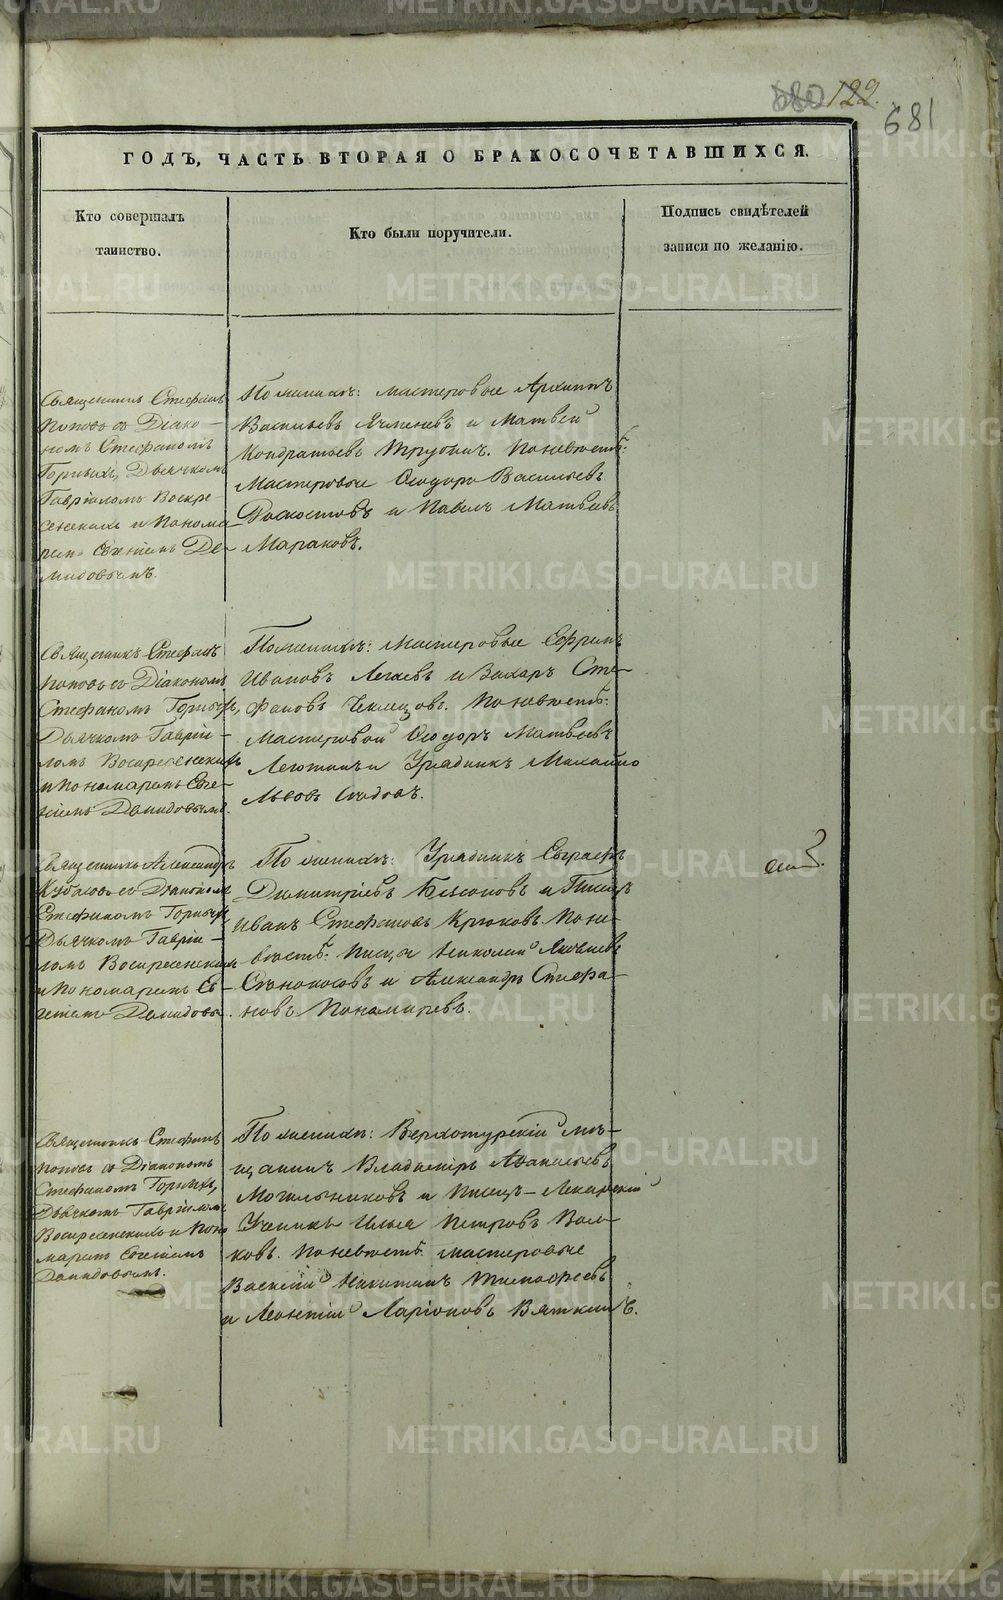 680 122.
681
ГОДЪ, ЧАСТЬ ВТОРАЯ О БРАКОСОЧЕТАВШИХСЯ.
Кто совершалъ
таинство.
Кто были поручители.
Подпись свидѣтелей
записи по желанію.
Священникъ Стефанъ
Поповъ съ Діако-
номъ Стефаномъ
Горныхъ, Дьячкомъ
Гавріиломъ Воскре-
сенскихъ и Понома
ремъ Евгеніемъ Де-
мидовымъ.
По женихѣ: мастеровые Архиппъ
Васильевъ Ячменевъ и Матвей
Кондратьевъ Трубин. По невѣстѣ:
Мастеровые Ѳеодоръ Васильевъ
и Павелъ Матвѣевъ
Мараковъ.
Священникъ Стефанъ
Поповъ съ Діакономъ
Стефаномъ Горныхъ,
Дьячкомъ Гаврії-
ломъ Воскресенскихъ
и Пономаремъ Евге-
ніемъ Демидовымъ.
По женихѣ: Мастеровые Ефремъ
Ивановъ и Захаръ Сте-
фановъ. По невѣстѣ:
Мастеровой Ѳеодоръ Матвѣевъ
и Урядникъ Михайло
Львовъ
Священникъ Александръ
съ Діакономъ
Стефаномъ Горныхъ
Дьячкомъ Гавріи-
ломъ Воскресенскихъ
и Пономаремъ Ев-
геніемъ Демидовы.
По женихѣ: Урядникъ Евграфъ
Димитріевъ и Писецъ
Иванъ Стефановъ Крюковъ. По не-
вѣстѣ: Писцы Николай Яковлевъ
и Александръ Стефа-
новъ Пономаревъ.
Священникъ Стефанъ
Поповъ съ Діакономъ
Стефаномъ Горныхъ,
Дьячкомъ Гавріиломъ
Воскресенскихъ и Поно
маремъ Евгеніемъ
Демидовымъ.
По женихѣ: Верхотурскій мѣ-
щанинъ Владиміръ Аѳанасьевъ
Могильниковъ и Писецъ-Лекарскій
Ученикъ Илья Петровъ Вол-
ковъ. По невѣстѣ: мастеровые
Василій Никитинъ Тимофеевъ
и Леонтій Ларіоновъ Вяткинъ.
METRIKI.GASO-URAL.RU